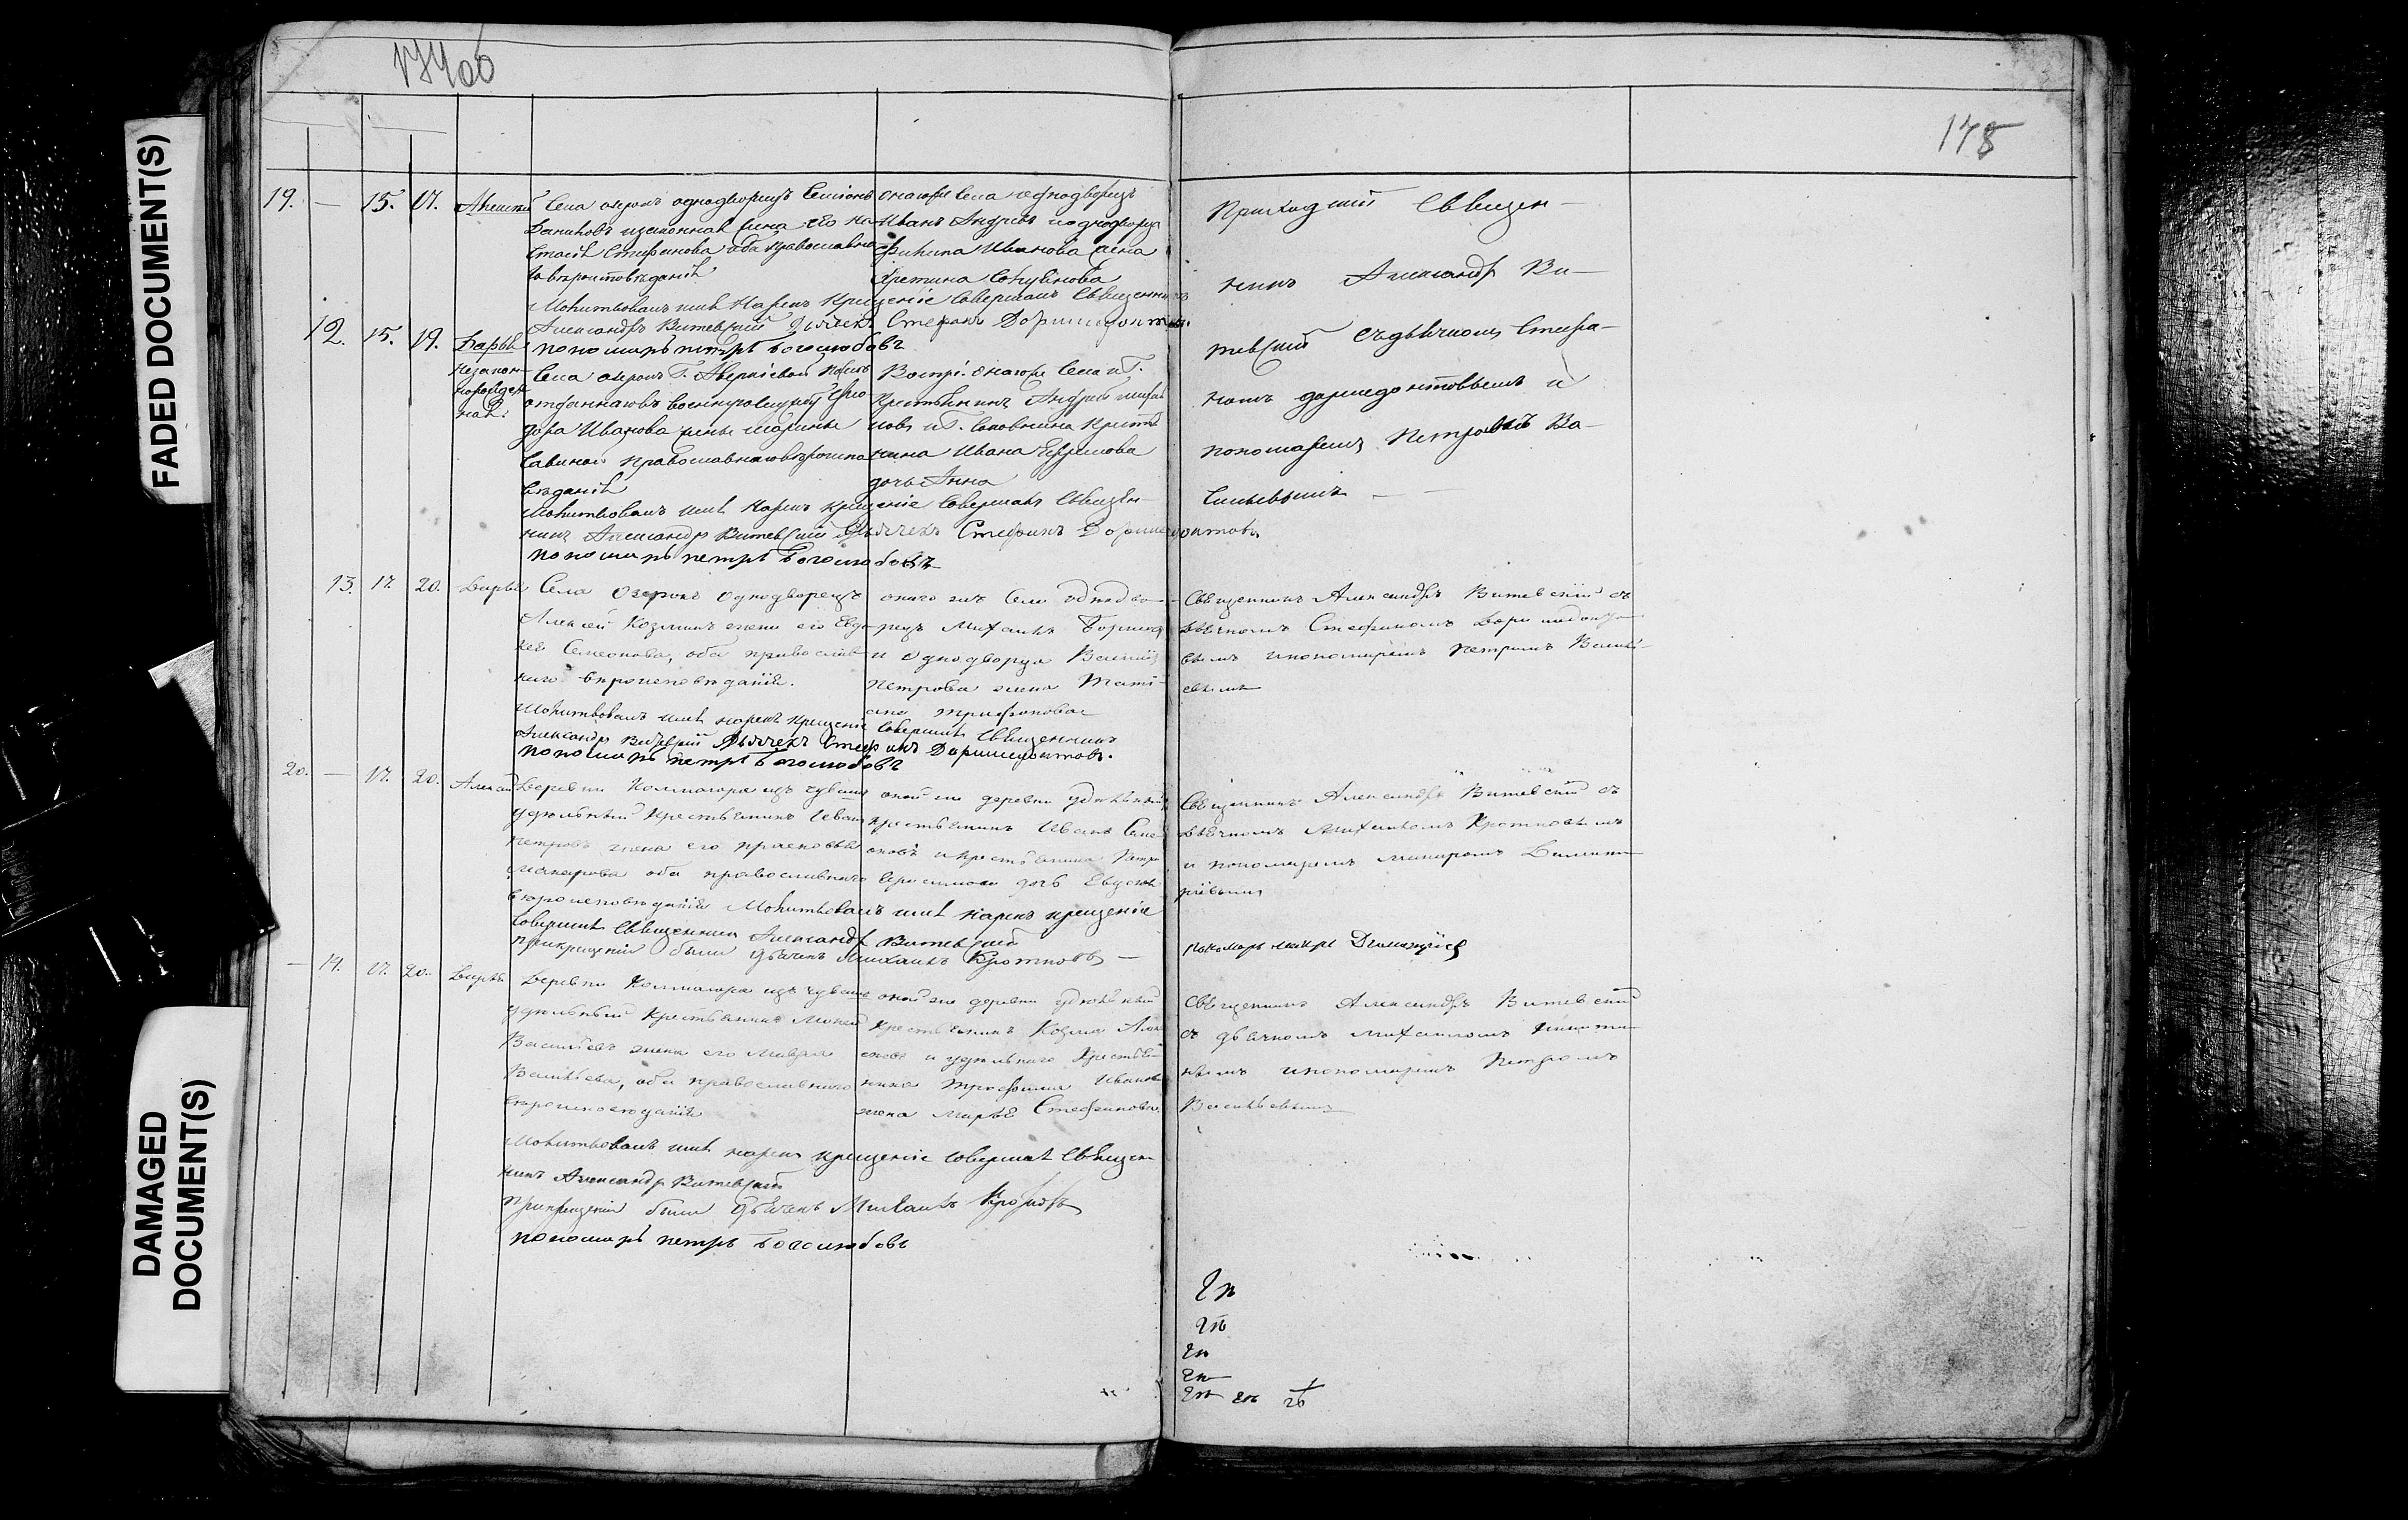 174об
178
19. — 15. 17. Алексей
Села озерокъ однодворецъ Семіонъ
Даниловъ изаконная жена его На
стасія Стефанова оба православна
го вѣроисповѣданія
онагоже села однодворецъ
Иванъ Андреевъ иоднодворца
Филипа Иванова жена
Приходскій Священ-
никъ Александръ Ви-
тевскій съдьячкомъ Стефа-
номъ Доримедонтовымъ и
пономаремъ Петромъ Ва-
сильевымъ
Молитвовалъ имя Нарекъ Крещеніе Совершалъ Священникъ
Александръ Витевскій Дьячекъ Стефанъ Доримедонтовъ.
пономарь петръ Боголюбовъ
12. 15. 19. Дарья
незакон-
норожден-
ная
Села озерокъ Г. Аверкіевой
дора Иванова жены Марины
Савиной православнаго вѣроиспо
вѣданія
Воспрі. онагоже села и Г.
Крестьянинъ Андрей
Ивана Ефимова
дочь Анна
Молитвовалъ имя Нарекъ Крещеніе Совершалъ Священ-
никъ Александръ Витевскій Дьячекъ Стефанъ Доримедонтовъ
пономарь петръ Боголюбовъ
13. 17. 20. Дарья
Села Озерокъ Однодворецъ
Алексей Козминъ жена его Евдо-
кея Семеонова, оба православ-
наго вѣроисповѣданія.
онаго же Села однодво-
рецъ Михаилъ
и однодворца Василія
Петрова жена Тати-
ана Трифонова
Священникъ Александръ Витевскій съ
дьячкомъ Стефаномъ Доримедонто-
вымъ ипономаремъ Петромъ Василь-
евымъ
Молитвовалъ имя нарекъ крещеніе Совершилъ Священникъ
Александръ Витевскій Дьячекъ Стефанъ Доримедонтовъ.
пономарь петръ Боголюбовъ
20. — 17. 20. Алексей
Деревни Колмаюра изъ чувашъ
удѣльный Крестьянинъ Иванъ
Петровъ жена его Прасковья
Макарова оба православнаго
вѣроисповѣданія
оной же деревни удѣльный
крестьянинъ Иванъ Симе-
оновъ икрестьянина Петра
Герасимова дочь Евдокія
Священникъ Александръ Витевскій съ
дьячкомъ Михаиломъ Кротковымъ
и пономаремъ Макаромъ Димит-
ріевымъ
Молитвовалъ имя Нарекъ крещеніе
Совершилъ Священникъ Александръ Витевскій
Прикрещеніи были Дьячекъ Михаилъ Кротковъ —
пономарь макаръ Димитріевъ
— 14. 17. 20. Дарья
Деревни Колмаюра изъ чувашъ
удѣльный Крестьянинъ Мокей
Васильевъ жена его Мавра
Васильева, оба православнаго
вѣроисповѣданія
оной же деревни удѣльный
Крестьянинъ Козма
и удѣльнаго Крестья-
нина Трофима Иванова
жена Марья Стефанова.
Священникъ Александръ Витевскій
съ дьячкомъ Михаиломъ Никити-
нымъ ипономаремъ Петромъ
Васильевымъ
Молитвовалъ имя нарекъ крещеніе совершилъ Священ-
никъ Александръ Витевскій
Прикрещеніи были Дьячекъ Михаилъ Кротковъ
пономарь петръ Боголюбовъ
FADED DOCUMENT(S)
DAMAGED
DOCUMENT(S)